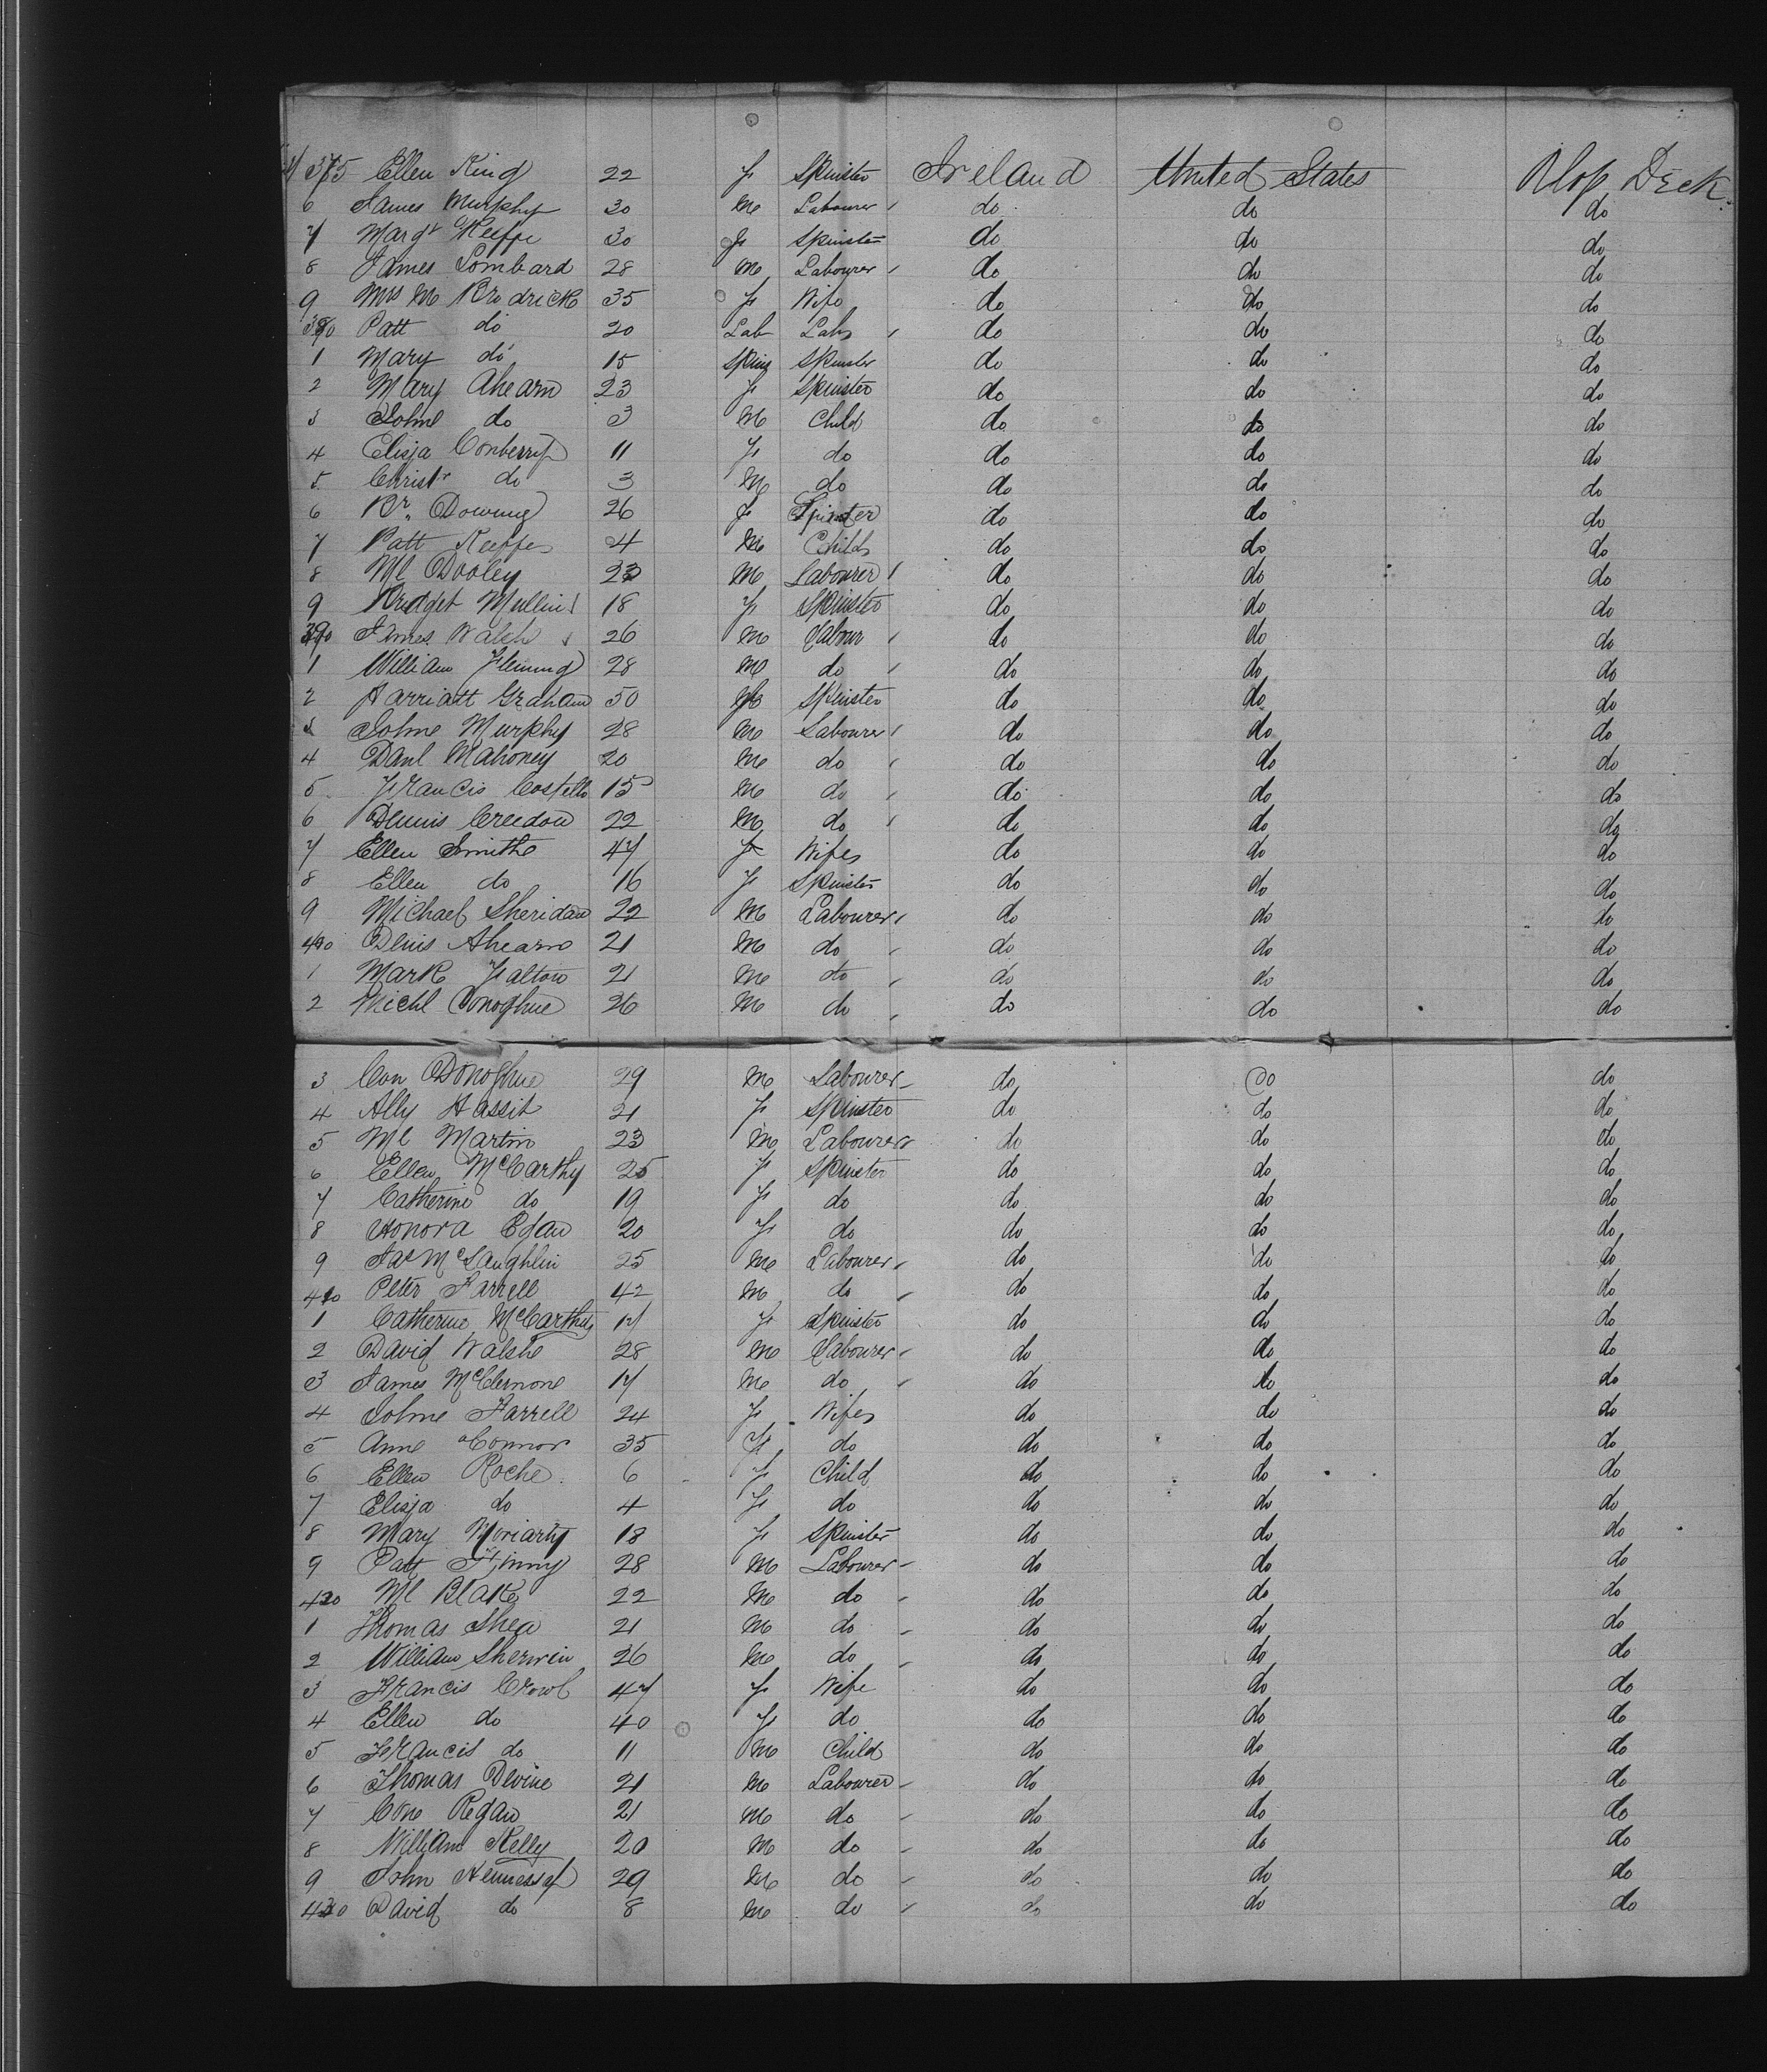 375 Ellen King 22 F Spinster Ireland United States Slop Deck.
6 James Murphy 30 M Labourer do do do
7 Margt Keeffe 30 F Spinster do do do
8 James Lombard 28 M Labourer do do do
9 Mrs M Brodrick 35 F Wife do do do
380 Patt do 20 Lab Labr do do do
1 Mary do 15 Spins Spinster do do do
2 Mary Ahearn 23 F Spinster do do do
3 Johne do 3 M Child do do do
4 Elisja Conberry 11 F do do do do
5 Christr do 3 M do do do do
6 Br. Downing 26 F Spinster do do do
7 Patt Keeffe 4 M Child do do do
8 Ml Dooley 23 M Labourer do do do
9 Bridget Mullins 18 F Spinster do do do
390 James Walsh 26 M Labour do do do
1 William Fleming 28 M do do do do
2 Harriatt Graham 50 F Spinster do do do
3 Johne Murphy 28 M Labourer do do do
4 Danl Mahoney 20 M do do do do
5 Francis Costello 15 M do do do do
6 Dennis Creedon 22 M do do do do
7 Ellen Smith 47 F Wife do do do
8 Ellen do 16 F Spinster do do do
9 Michael Sheridan 22 M Labourer do do do
400 Denis Ahearn 21 M do do do do
1 Mark Falton 21 M do do do do
2 Michl Donoghue 26 M do do do do
3 Con Donoghue 29 M Labourer do do do
4 Ally Hassit 21 F Spinster do do do
5 Ml Martin 23 M Labourer do do do
6 Ellen McCarthy 25 F Spinster do do do
7 Catherine do 19 F do do do do
8 Honora Egan 20 F do do do do
9 Jas McLaughlin 25 M Labourer do do do
410 Peter Farrell 42 M do do do do
1 Catherine McCarthy 17 F Spinster do do do
2 David Walshe 28 M Labourer do do do
3 James McClemone 17 M do do do do
4 Johne Farrell 24 F Wife do do do
5 Anne oConnor 35 F do do do do
6 Ellen Roche 6 F Child do do do
7 Elisja do 4 F do do do do
8 Mary Moriarty 18 F Spinster do do do
9 Patt Finny 28 M Labourer do do do
420 Ml Blake 22 M do do do do
1 Thomas Shea 21 M do do do do
2 William Sherwin 26 M do do do do
3 Francis Crowl 47 F Wife do do do
4 Ellen do 40 F do do do do
5 Francis do 11 M Child do do do
6 Thomas Devine 21 M Labourer do do do
7 Cone Regan 21 M do do do do
8 William Kelly 20 M do do do do
9 John Hennessy 29 M do do do do
430 David do 8 M do do do do